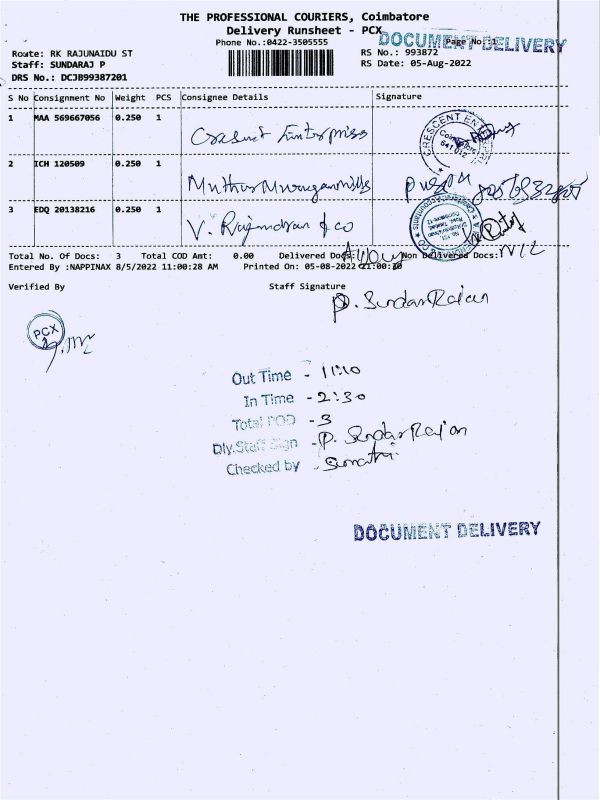 THE PROFESSIONAL COURIERS, Coimbatore
Delivery Runsheet - PCX
DOCUMENT DELIVERY
Phone No.:0422-3505555
Page No.:1
Route: RK RAJUNAIDU ST
RS No.: 993872
Staff: SUNDARAJ P
RS Date: 05-Aug-2022
DRS No.: DCJB99387201
S No Consignment No Weight PCS Consignee Details Signature
1 MAA 569667056 0.250 1 Enterprises
CRESCENT ENTERPRI
Coimbatore
641 012
2 ICH 120509 0.250 1 Muthu Murugan mills
3 EDQ 20138216 0.250 1 V. Rajendran & co
Total No. Of Docs: 3 Total COD Amt: 0.00 Delivered Docs: Non Delivered Docs: NIL
Entered By :NAPPINAX 8/5/2022 11:00:28 AM Printed On: 05-08-2022 11:00:30
Verified By Staff Signature
P. SundarRajan
PCX
Out Time - 11:10
In Time - 2:30
Total POD - 3
Dly.Staff Sign - P. SundarRajan
Checked by - Sumathi
DOCUMENT DELIVERY